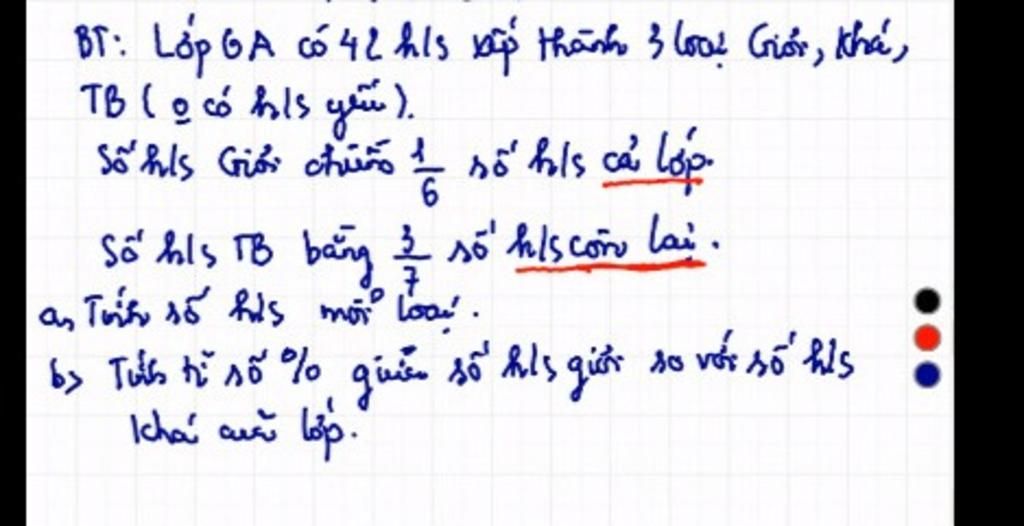 BT: Lớp 6A có 42 h/s xếp thành 3 loại Giỏi, Khá,
TB ( o có h/s yếu).
Số h/s Giỏi chiếm 1/6 số h/s cả lớp.
Số h/s TB bằng 3/7 số h/s còn lại.
a, Tính số h/s mỗi loại.
b, Tính tỉ số % giữa số h/s giỏi so với số h/s
khá của lớp.